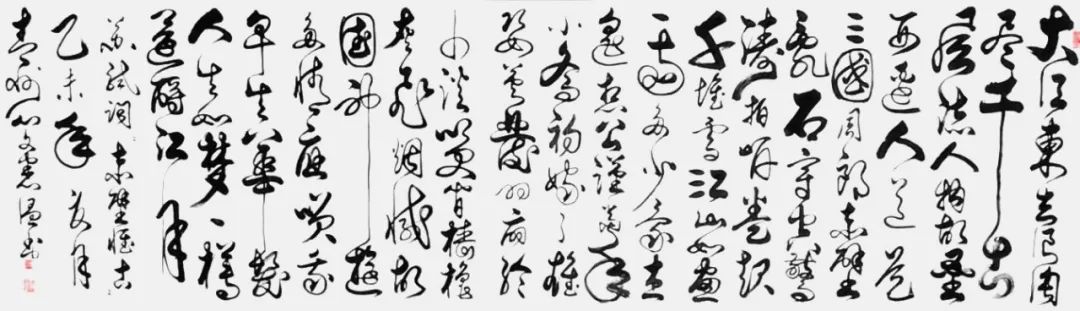 大江東去浪淘
尽千古
風流人物故壘
西邊人道是
三國周郎赤壁
亂石穿空驚
濤拍岸卷起
千堆雪江山如畫
一時多少豪杰
遙想公瑾當年
小喬初嫁了雄
姿英發羽扇綸
巾談笑間檣櫓
灰飛煙滅故
國神遊
多情應笑我
早生華髮
人生如夢一樽
還酹江月
蘇軾詞赤壁懷古
乙未年夏月
青州